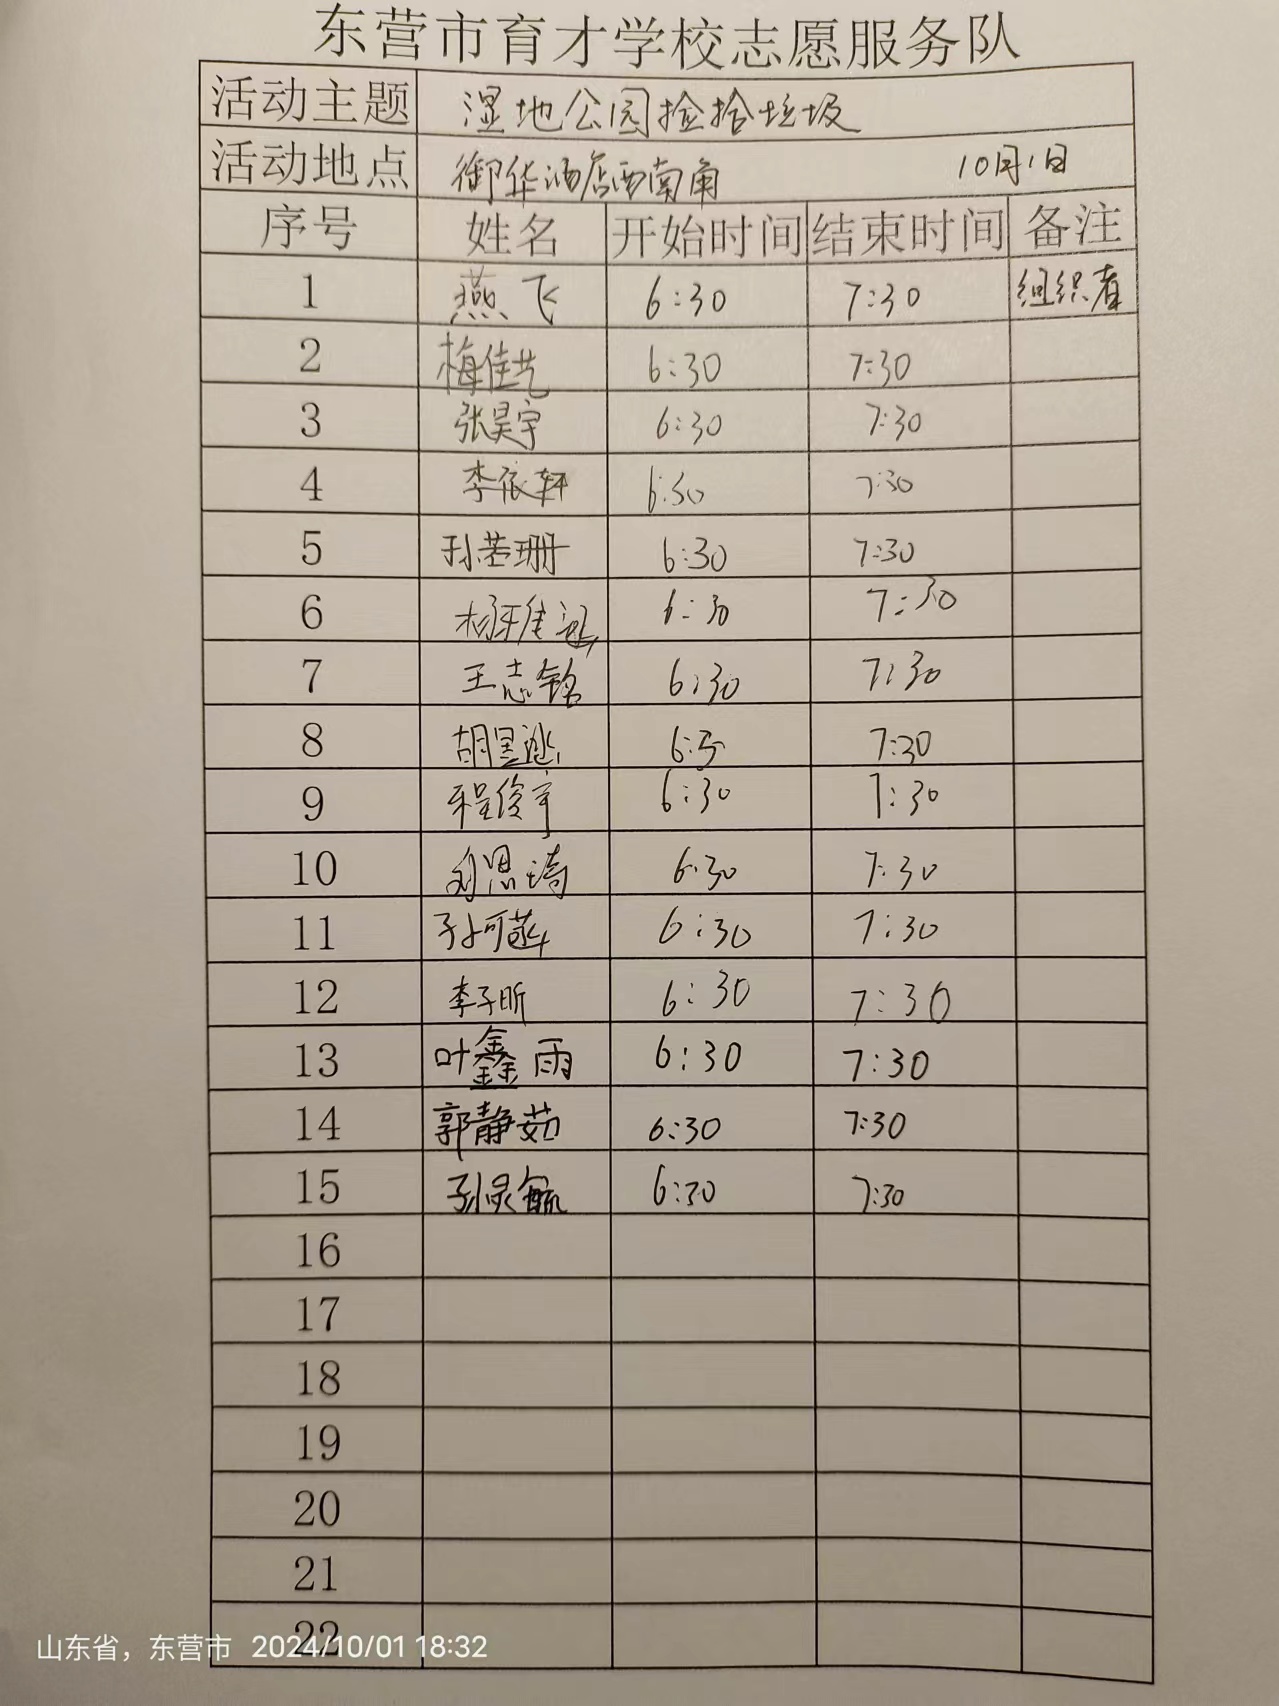 东营市育才学校志愿服务队
活动主题 湿地公园捡拾垃圾
活动地点 御华酒店西南角 10月1日
序号 姓名 开始时间 结束时间 备注
1 燕飞 6:30 7:30 组织者
2 梅佳艺 6:30 7:30
3 张昊宇 6:30 7:30
4 李依轩 6:30 7:30
5 孙若珊 6:30 7:30
6 6:30 7:30
7 王志铭 6:30 7:30
8 6:30 7:30
9 程俊宇 6:30 7:30
10 刘思琦 6:30 7:30
11 6:30 7:30
12 李子昕 6:30 7:30
13 叶鑫雨 6:30 7:30
14 郭静茹 6:30 7:30
15 6:30 7:30
16
17
18
19
20
21
22
山东省，东营市 2024/10/01 18:32